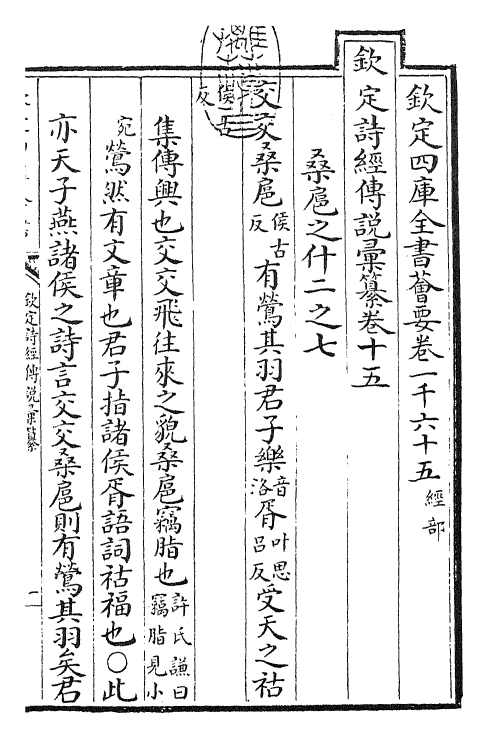 欽定四庫全書薈要卷一千六十五 經部
欽定詩經傳說彙纂卷十五
桑扈之什二之七
交交桑扈侯古反有鶯其羽君子樂音洛胥叶思呂反受天之祜
侯古反
集傳興也交交飛往來之貌桑扈竊脂也許氏謙曰竊脂見小
宛鶯然有文章也君子指諸侯胥語詞祜福也○此
亦天子燕諸侯之詩言交交桑扈則有鶯其羽矣君
欽定詩經傳說彙纂
一